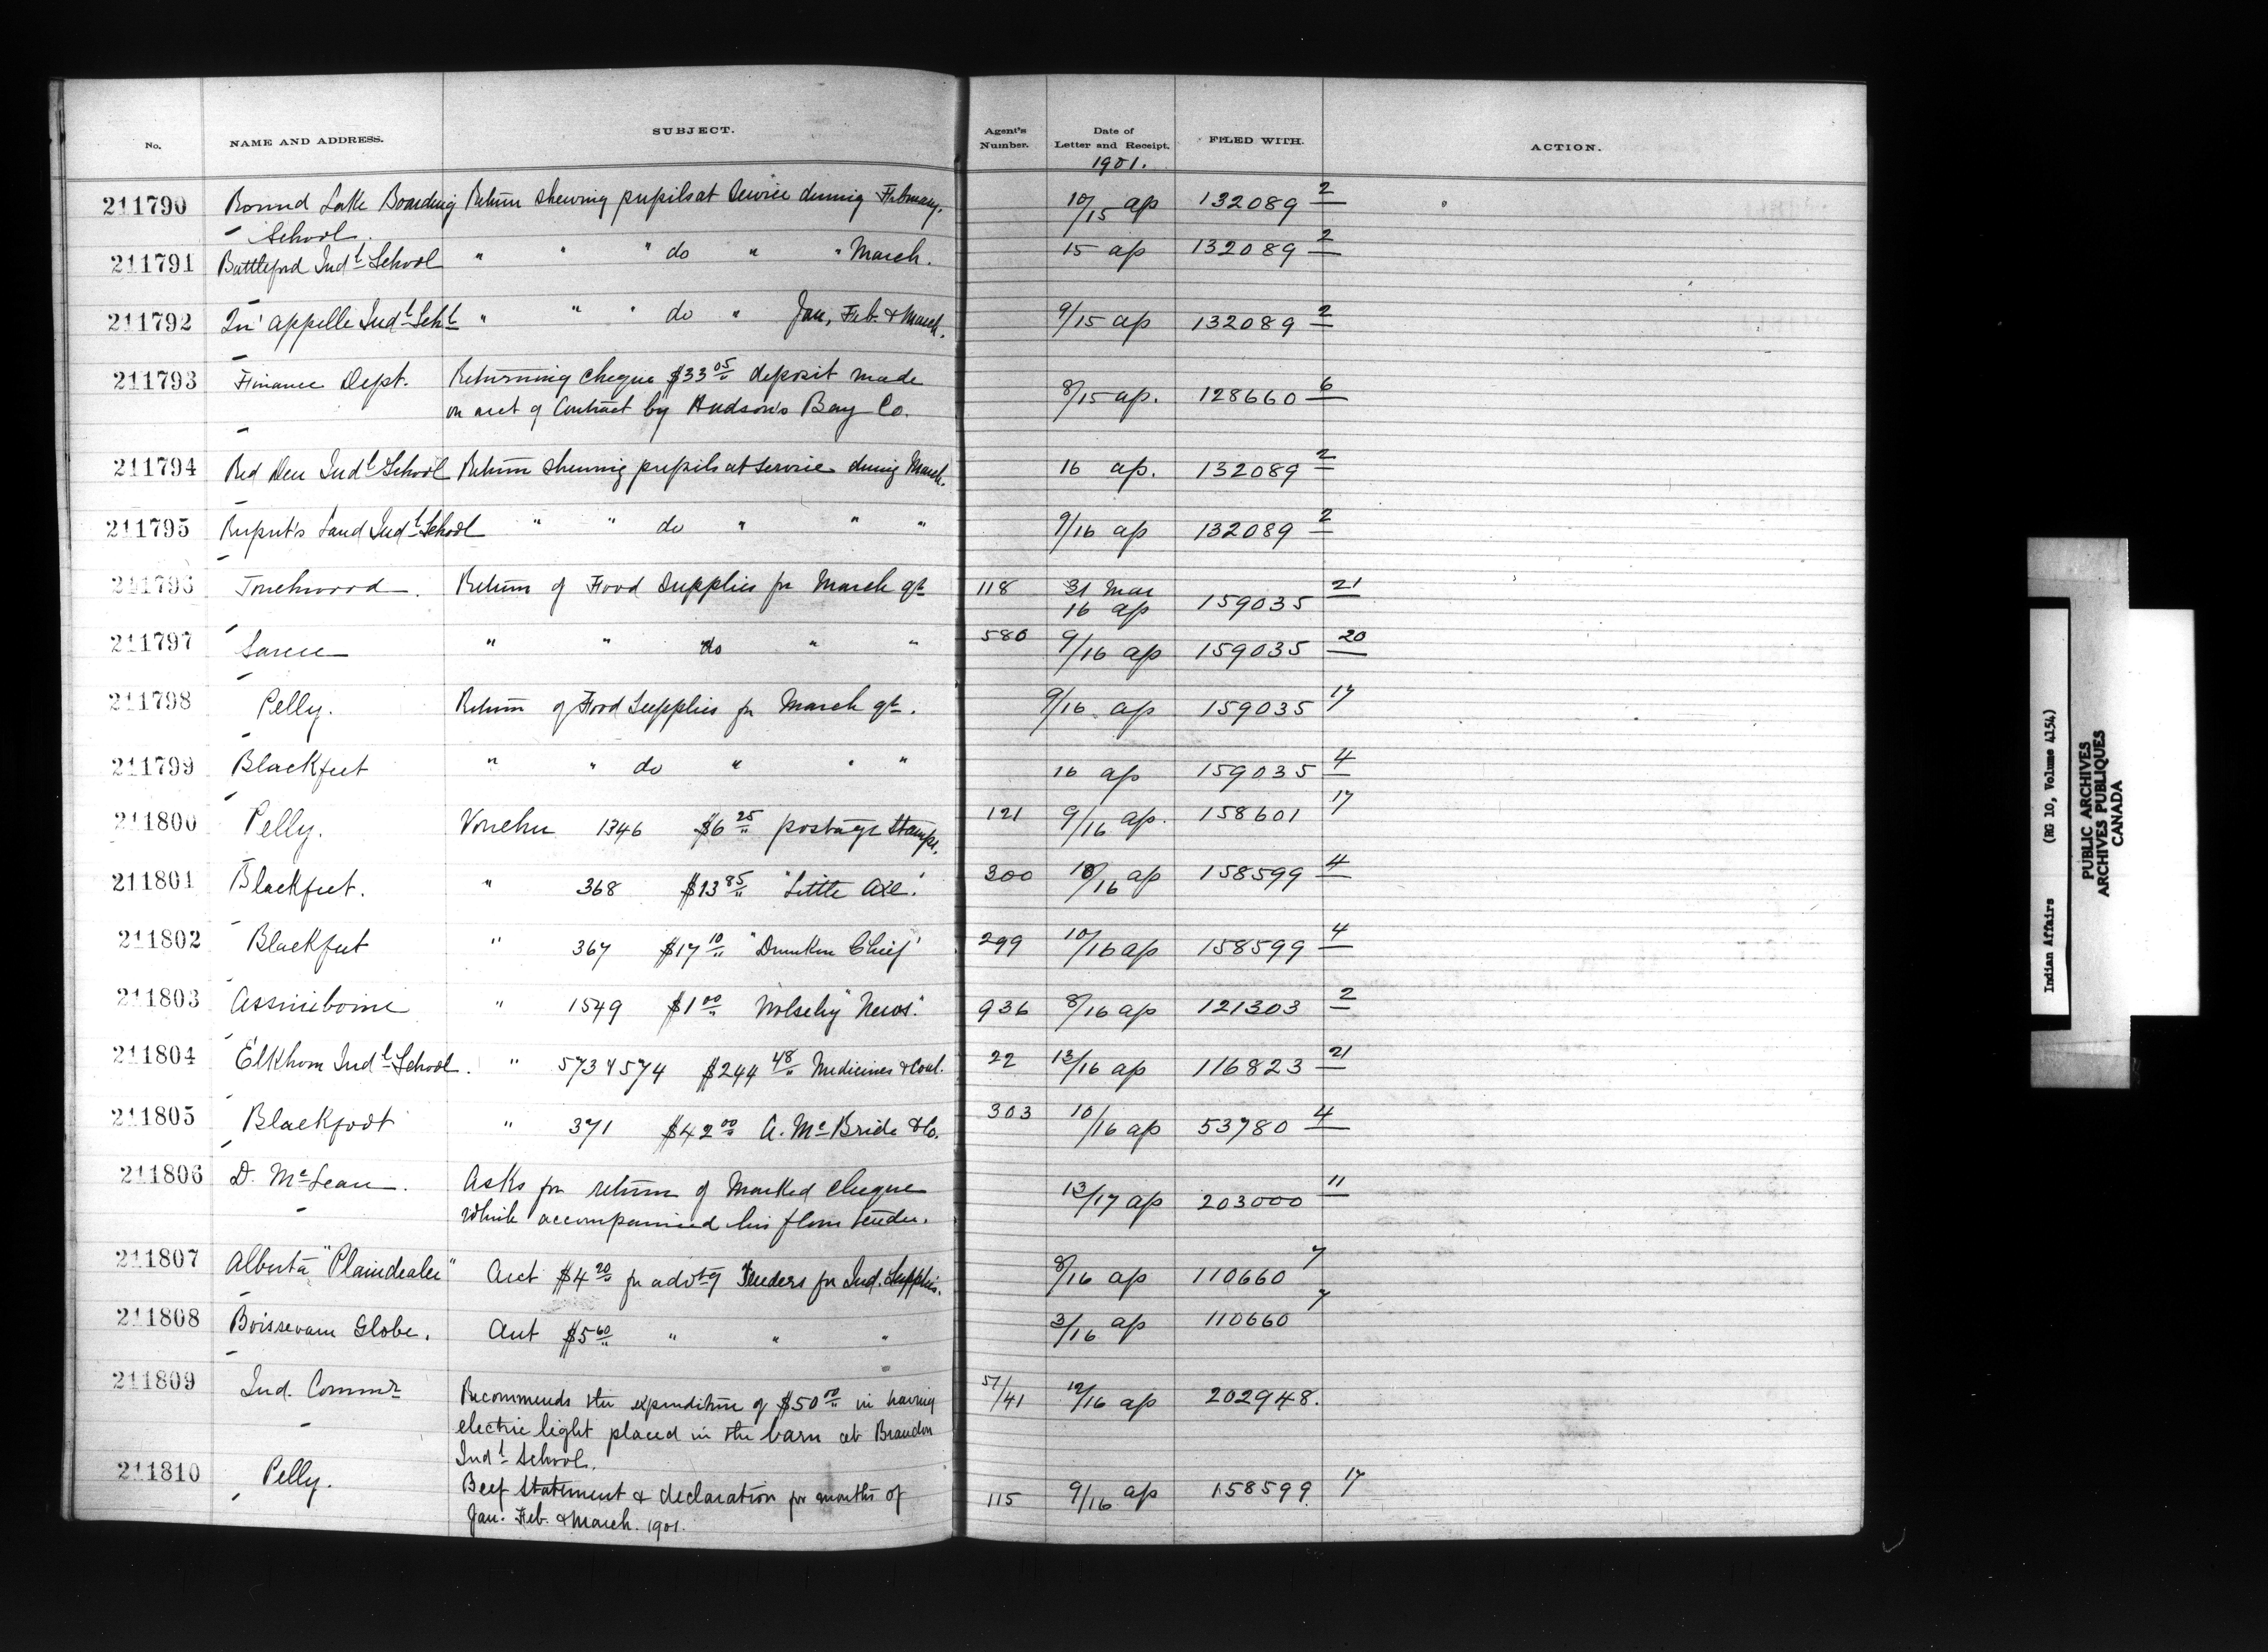 No. NAME AND ADDRESS. SUBJECT. Agent's Number. Date of Letter and Receipt. FILED WITH. ACTION.
1901.
211790 Round Lake Boarding Return shewing pupils at Service during February. 10/15 ap 132089 2
School.
211791 Battleford Indl School " " " do " " March. 15 ap 132089 2
211792 Qu'appelle Indl Schl " " " do " Jan, Feb. & March. 9/15 ap 132089 2
211793 Finance Dept. Returning cheque $33 05 deposit made 8/15 ap. 128660 6
on acct of Contract by Hudson's Bay Co.
211794 Red Deer Indl School Return shewing pupils at service during March. 16 ap. 132089 2
211795 Rupert's Land Indl School " " do " " " 9/16 ap 132089 2
211796 Touchwood. Return of Food Supplies for March qr 118 31 Mar
16 ap 159035 21
211797 Sarcee " " do " " 580 9/16 ap 159035 20
211798 Pelly. Return of Food Supplies for March qr. 9/16 ap 159035 17
211799 Blackfeet " " do " " " 16 ap 159035 4
211800 Pelly. Voucher 1346 $6 25 postage stamps. 121 9/16 ap. 158601 17
211801 Blackfeet. " 368 $13 85 "Little Axe". 300 10/16 ap 158599 4
211802 Blackfeet " 367 $17 10 "Drunken Chief" 299 10/16 ap 158599 4
211803 Assiniboine " 1549 $1 00 Wolseley "News". 936 8/16 ap 121303 2
211804 Elkhorn Indl School. " 573 & 574 $244 48 Medicines & Coal. 22 13/16 ap 116823 21
211805 Blackfoot " 371 $42 00 A. McBride & Co. 303 10/16 ap 53780 4
211806 D. McLean. Asks for return of Marked cheque 13/17 ap 203000 11
which accompanied his flour tender.
211807 Alberta "Plaindealer" Acct $4 20 for advtg Tenders for Ind. Supplies. 8/16 ap 110660 7
211808 Boissevain Globe. Acct $5 60 " " " 3/16 ap 110660 7
211809 Ind. Commr Recommends the expenditure of $50 00 in having 51/41 12/16 ap 202948.
electric light placed in the barn at Brandon
Indl School.
211810 Pelly. Beef Statement & declaration for months of 115 9/16 ap 158599 17
Jan. Feb. & March. 1901.
Indian Affairs (RG 10, Volume 4154)
PUBLIC ARCHIVES
ARCHIVES PUBLIQUES
CANADA